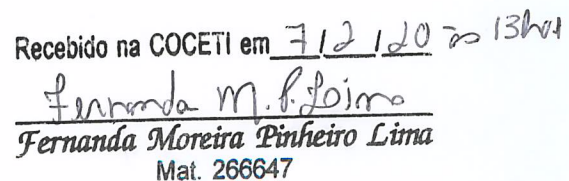 Recebido na COCETI em 7/2/20 às 13h01
Fernanda M. P. Lima
Fernanda Moreira Pinheiro Lima
Mat. 266647